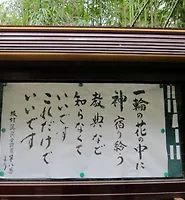 一輪の花の中に
神宿り給う
教典など
知らなくて
いいです
これだけで
いいです
坂村真民